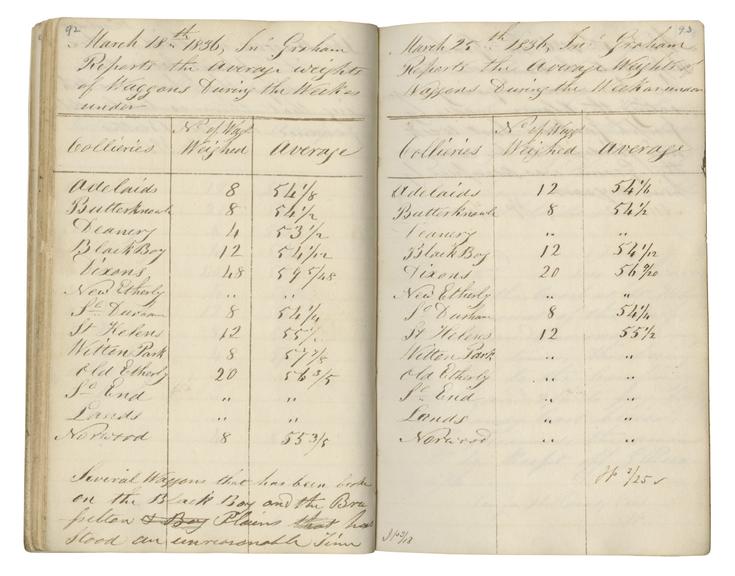 92
March 18th 1836, Jno Graham
Reports the average weights
of Waggons During the Week as
under
Collieries No of Wagg Weighed Average
Adelaids 8 54 1/8
Butterknowle 8 54 1/2
Deanery 4 53 1/2
Black Boy 12 54 1/12
Dixons 48 59 5/48
New Etherly " "
So Durham 8 54 1/4
St Helens 12 55
Witton Park 8 57 7/8
Old Etherly 20 56 3/5
So End " "
Lands " "
Norwood 8 55 3/8
Several Waggons that has been broke
on the Black Boy and the Bru
sselton & Boy Plains that has
stood an unreasonable Time
93
March 25th 1836, Jno Graham
Reports the Average Weights of
Waggons During the Week as under
Collieries No of Wagg Weighed Average
Adelaids 12 54
Butterknowle 8 54 1/2
Deanery " "
Black Boy 12 54 1/12
Dixons 20 56 9/20
New Etherly " "
So Durham 8 54 1/4
St Helens 12 55 1/2
Witton Park " "
Old Etherly " "
So End " "
Lands " "
Norwood " "